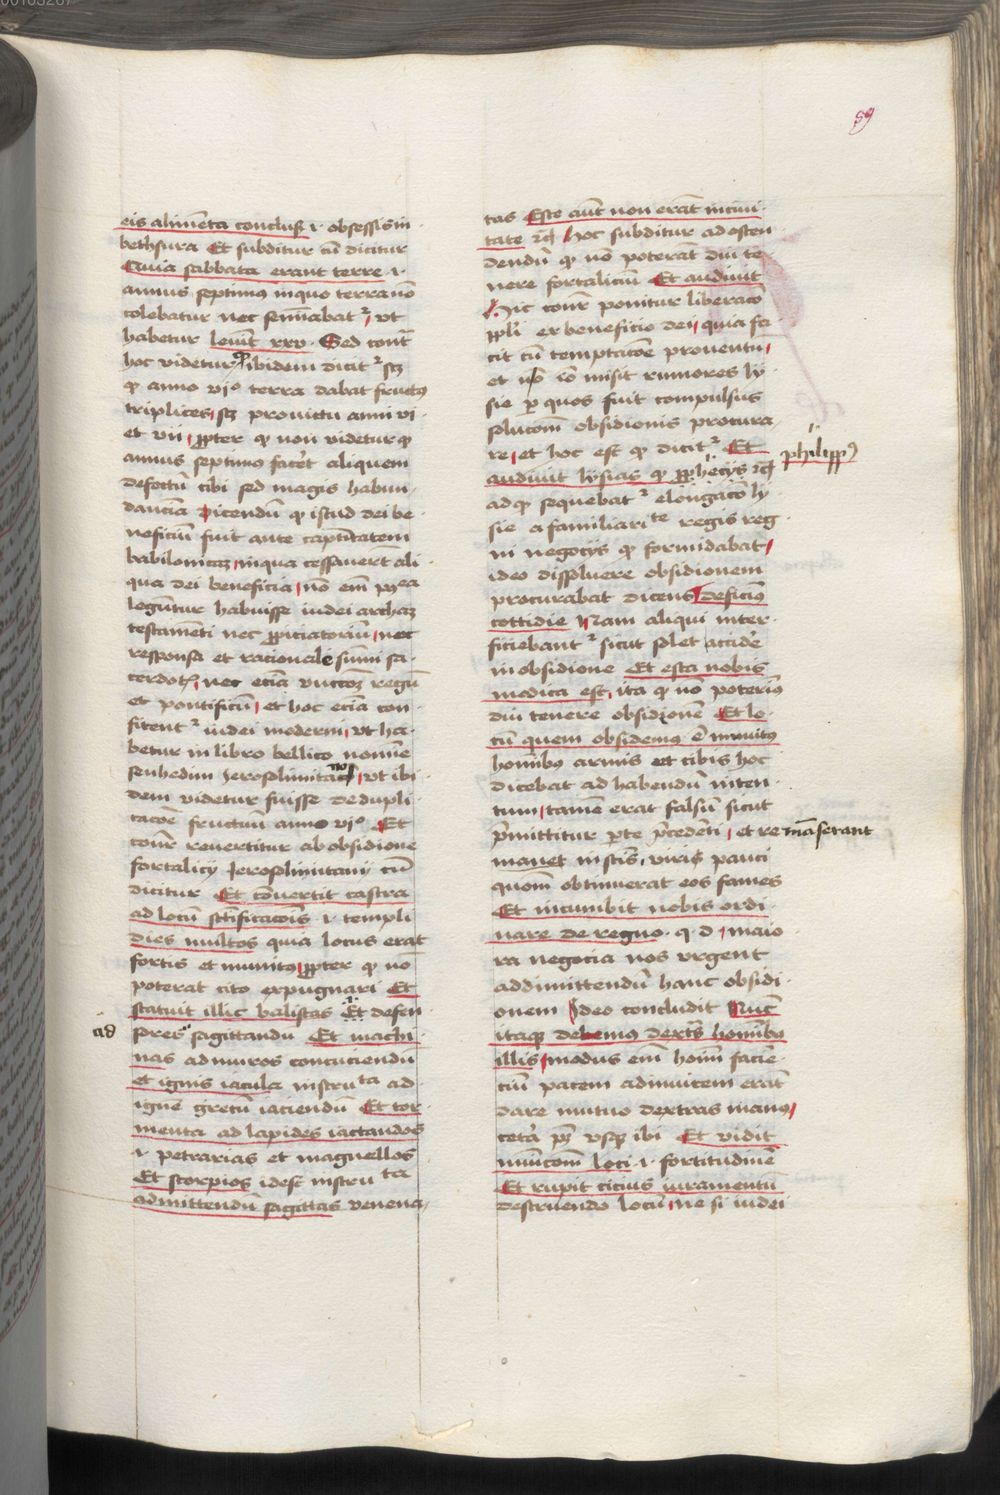 00103267
59
eis alimēta conclusis .i. obsessis in
bethsura Et subditur cū dicitur
Quia sabbata erant terre .i.
annus septimus in quo terra nō
colebatur nec semīabatᷣ, vt
habetur leuit xxv. Sed contᷓ
hoc videtur, qꝫ ibidem dicitᷣ scꝫ
qꝫ anno vjº terra dabat fructus
triplices, scꝫ pro victu anni vi
et vii, ꝓpter qꝫ non videtur qꝫ
annus septimus facēt aliquem
defectū cibi sed magis habun
danciā Dicendū qꝫ istud dei be
neficiū fuit ante captītatem
babilonicaꝫ, in qua cessauerūt ali
qua dei beneficia, nō em̄ post ea
legūtur habuisse iudei archaꝫ
testamēti nec ꝓpiciatoriū, nec
responsa et racionale sūmi sa
cerdotꝭ, nec eciā vnctōꝫ regū
et pontificū, et hoc eciā con
fitentᷣ iudei moderni, vt ha
betur in libro bellico nomīe
senhedim Jerosolimitano, vt ibi
dem videtur fuisse de dupli
cacōe fructuū anno vjº Et
cōnr reuertitur ab obsidione
fortalicij Jerosolimitani cū
dicitur Et cōuertit castra
ad locū sctīficacōis .i. templi
dies multos quia locus erat
fortis et munitus, ꝓpter qꝫ nō
poterat cito expugnari Et
statuit illic balistas Et defen
ad
sores sagittandū Et machi
nas ad muros concuciendū
et ignis iacula instruta ad
ignē grecū iaciendū Et tor
menta ad lapides iactandos
.i. petrarias et magnellos
Et scorpios idest instruta
ad mittendū sagittas venena
tas Este aūt non erāt in ciui
tate rcꝫ Hoc subditur ad osten
dendū qꝫ nō poterāt diu te
nere fortaliciū Et audiuit
Hic cōnr ponitur liberacō
ppli ex beneficio dei, quia fa
cit cū temptacōe prouentū,
et nō īo misit rumores ly
sie per quos fuit compulsus
solucōm obsidionis procura
re, et hoc est qꝫ dicitᷣ Et
philippꝰ
audiuit lysias qꝫ ꝓphecijs rcꝫ
ad qꝫ sequebatᷣ elongacō ly
sie a familiaritᵗᵉ regis reg
ni negocijs qꝫ formidabat,
ideo dissoluere obsidionem
procurabat dicens, deficimꝰ
cottidie Nam aliqui inter
ficiebantᷣ sicut solet accidē
in obsidione Et esca nobis
modica est, ita qꝫ nō poterimꝰ
diu tenere obsidionē Et lo
cū quem obsidemus ē munitus
hoīibus armis et cibis hoc
dicebat ad habendū inten
tum, tamē erat falsū sicut
p̄mittitur pᵃte p̄cedēti, et re māserant
manet in sctis, viris pauci
quonī obtinuerat eos fames
Et incumbit nobis ordi
nare de regno. q. d, maio
ra negocia nos vrgent
ad dimittendū hanc obsidi
onem Ideo concludit Nūc
itaqꝫ demus dextᵃs hoīibus
illis, modus em̄ hoīm faciē
ciū pacem adinuicem erāt
dare mutuo dextras manus,
cetā pꝫ vsqꝫ ibi Et vidit
municōm loci .i. fortitudinē
Et rupit cicius iuramentū
destruendo locū, ne si iudei